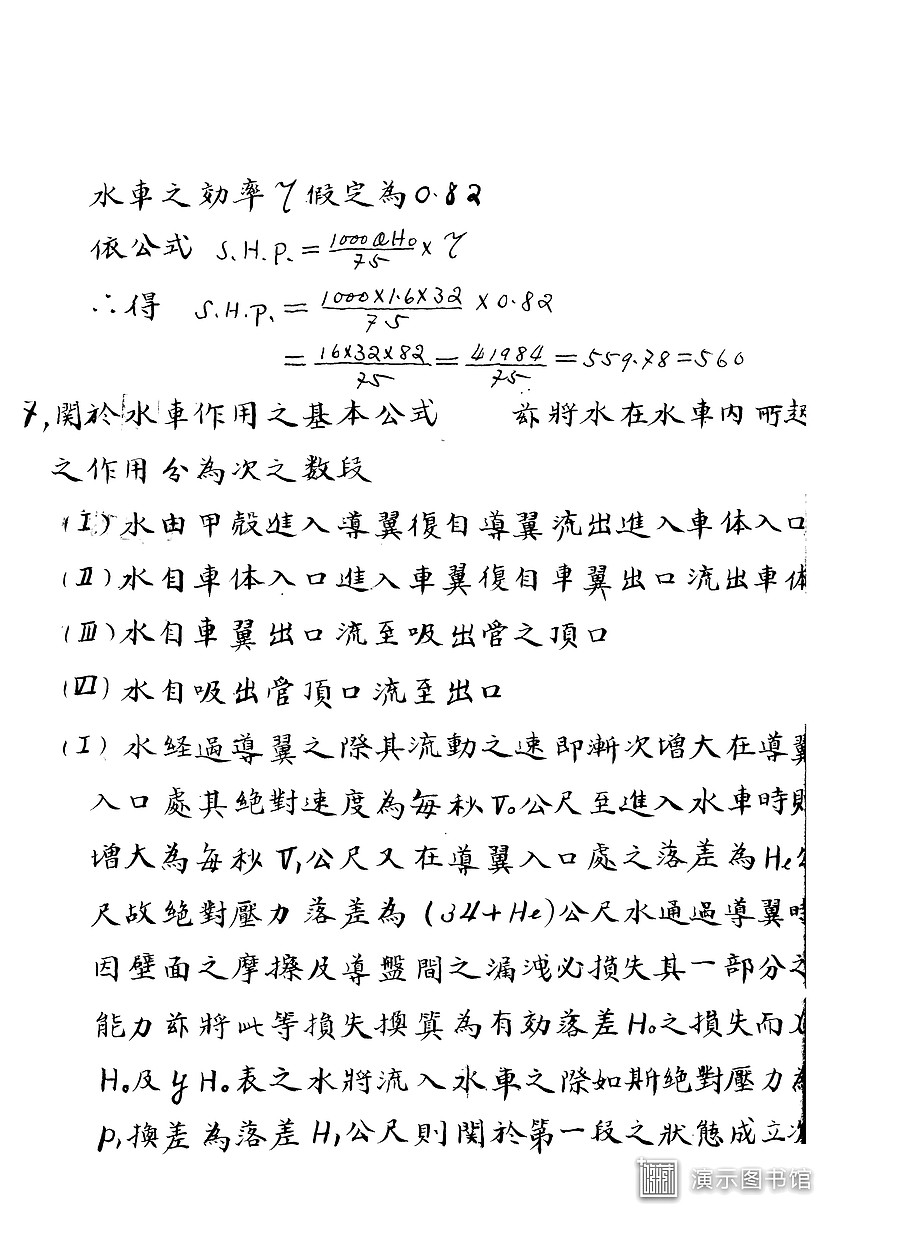 水車之効率η假定為0.82
依公式 S.H.P. = 1000QH₀/75 × η
∴得 S.H.P. = 1000×1.6×32/75 × 0.82
= 16×32×82/75 = 41984/75 = 559.78 = 560
7, 関於水車作用之基本公式 茲將水在水車内所起
之作用分為次之数段
(I) 水由甲殼進入導翼復自導翼流出進入車体入口
(II) 水自車体入口進入車翼復自車翼出口流出車体
(III) 水自車翼出口流至吸出管之頂口
(VI) 水自吸出管頂口流至出口
(I) 水経過導翼之際其流動之速即漸次增大在導翼
入口處其絶對速度為每秒V₀公尺至進入水車時則
增大為每秒V₁公尺又在導翼入口處之落差為He公
尺故絶對壓力落差為 (34+He)公尺水通過導翼時
因壁面之摩擦及導盤間之漏洩必損失其一部分之
能力茲將此等損失換算為有効落差H₀之損失而以
H₀及yH₀表之水將流入水車之際如斯絶對壓力為
p₁換差為落差H₁公尺則関於第一段之狀態成立次
演示图书馆